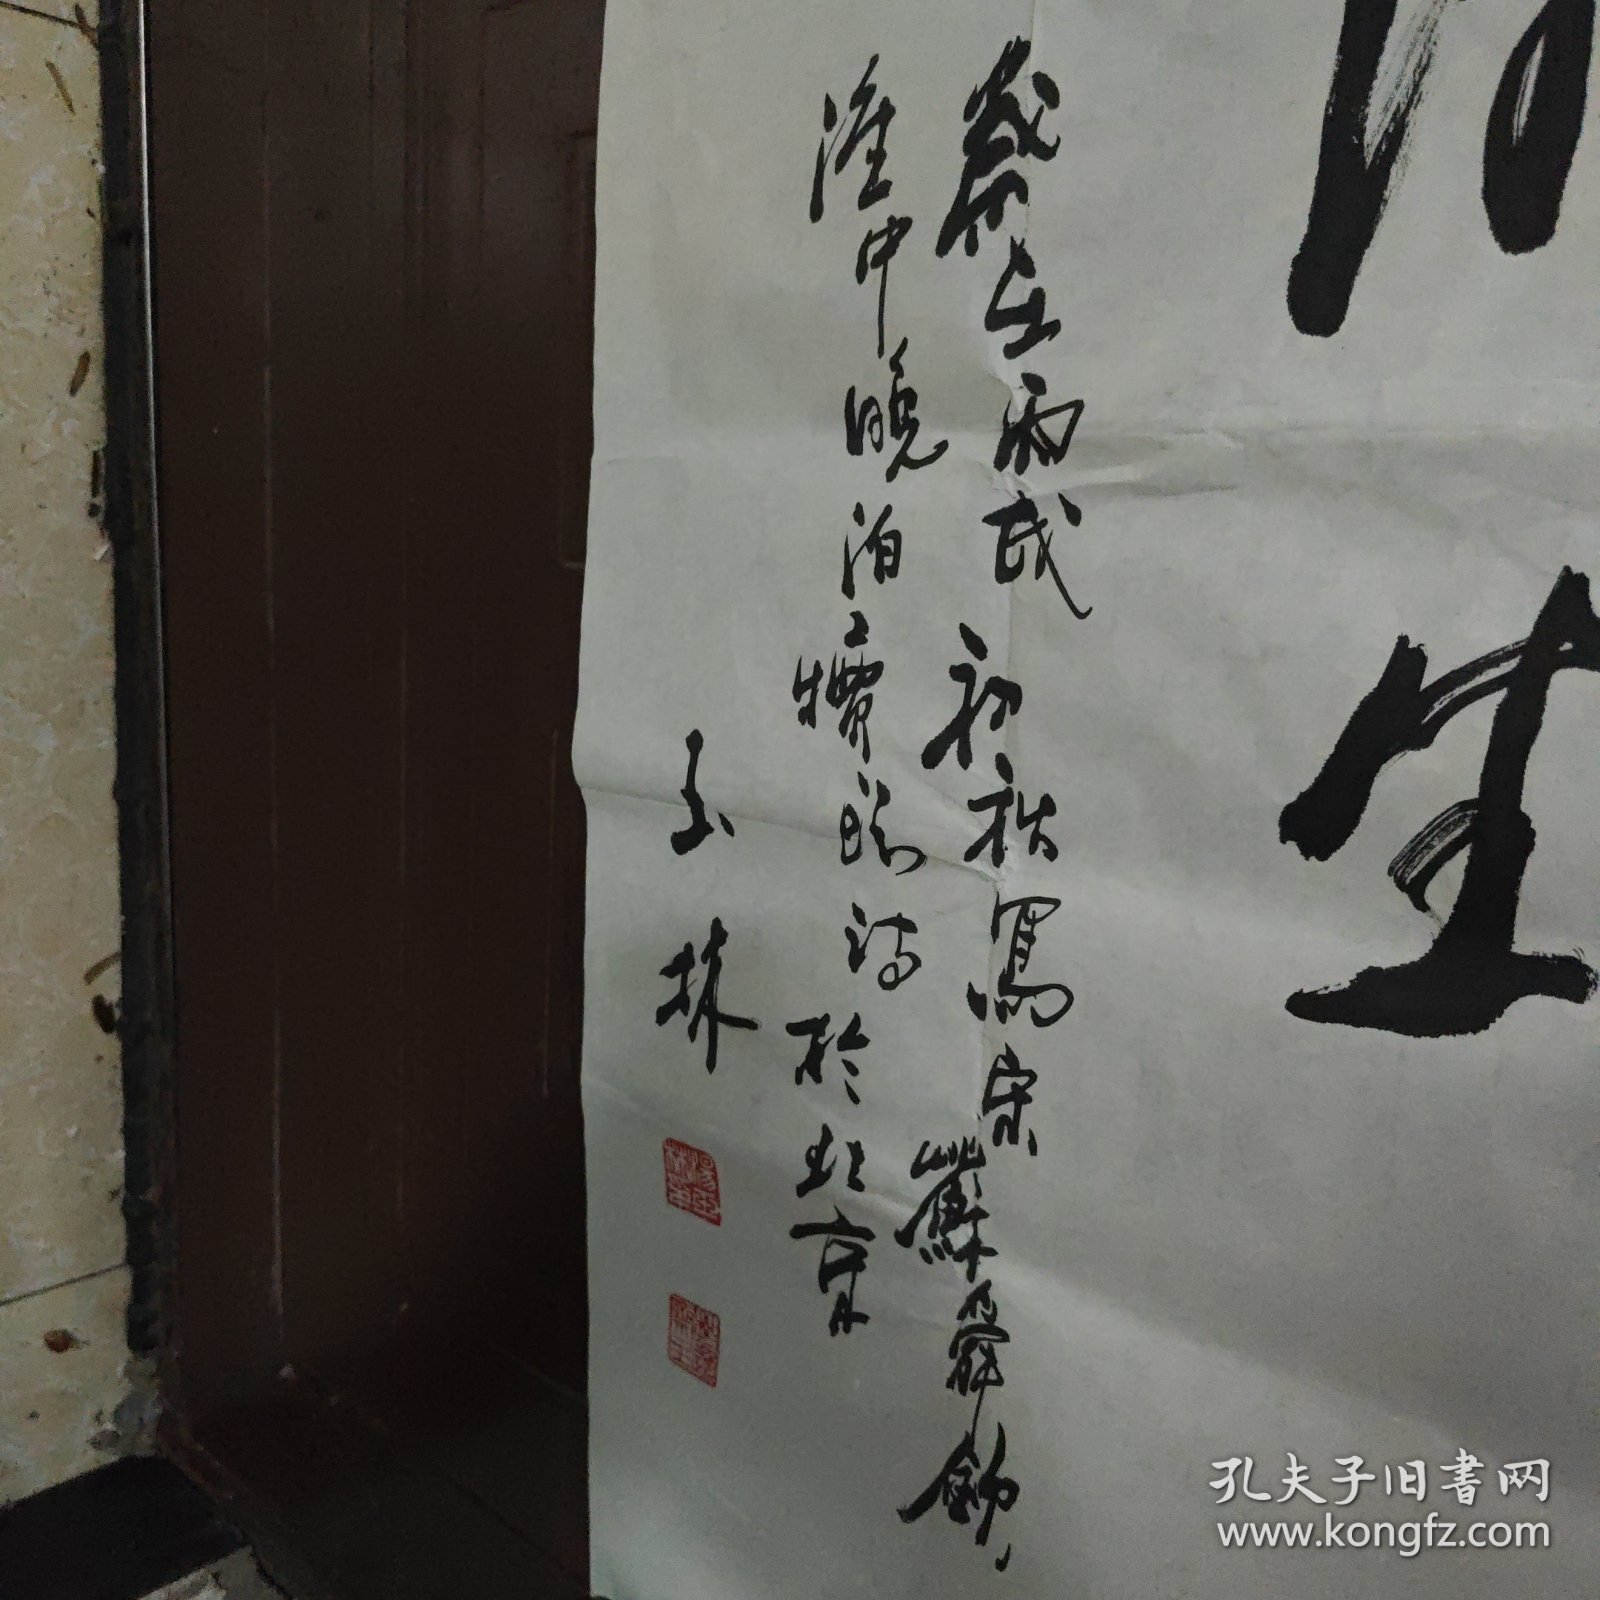 生
歲在丙戌初秋寫宋蘇舜欽
淮中晚泊犢頭詩於北京
玉林
孔夫子旧书网
www.kongfz.com